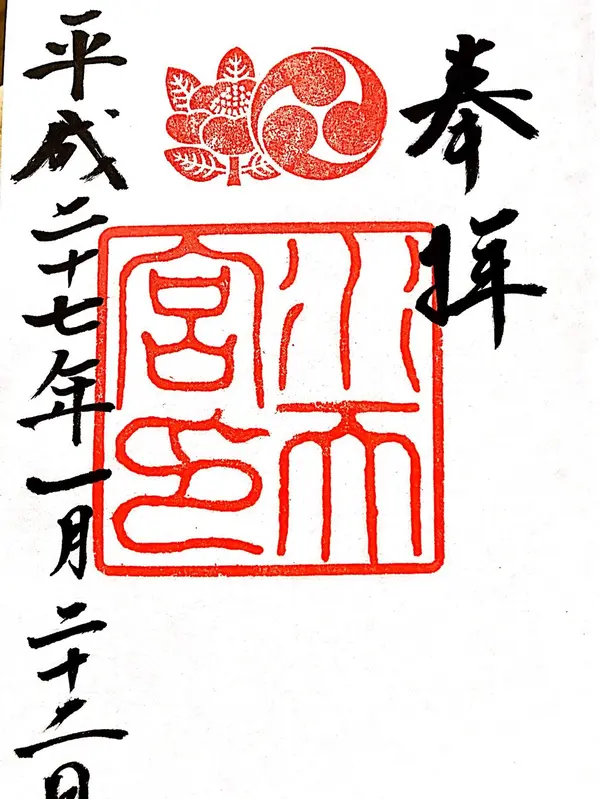 奉拝
水天宮印
平成二十七年一月二十二日